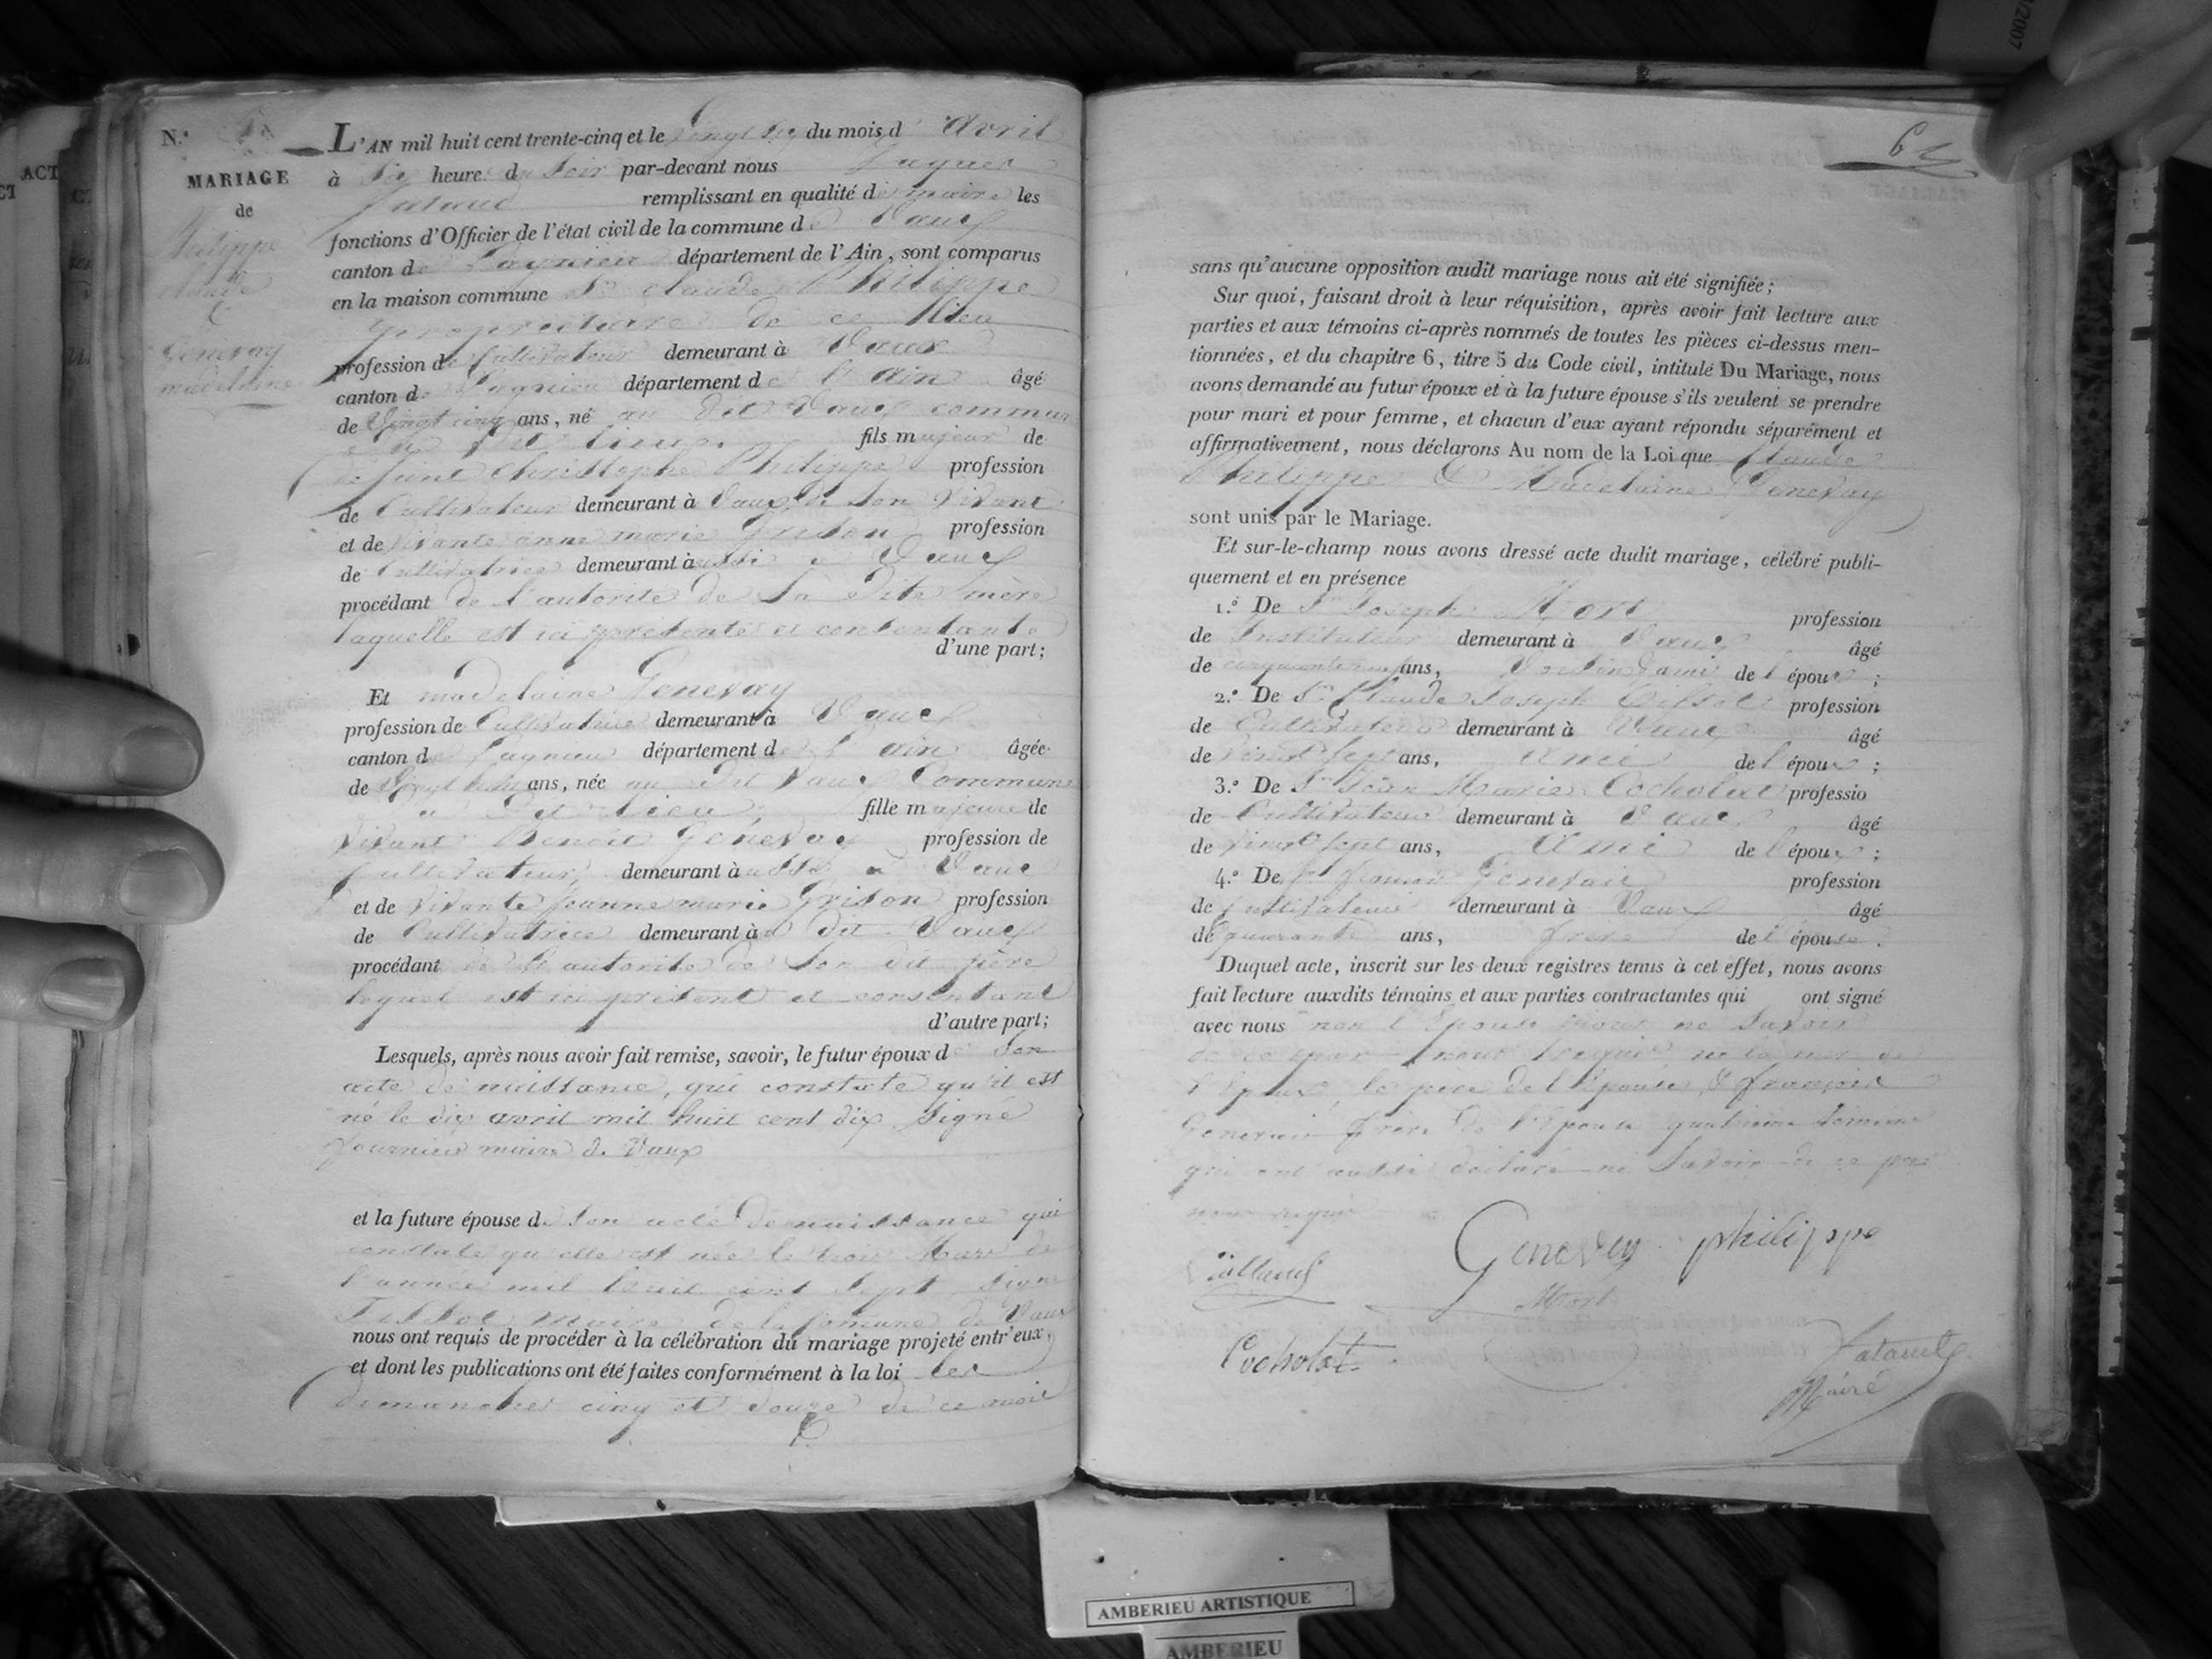 N.°
MARIAGE
de
Philippe
claude
&
Genevay
madelaine
L'AN mil huit cent trente-cinq et le vingt six du mois d'avril
à six heure du soir par-devant nous
remplissant en qualité de maire les
fonctions d'Officier de l'état civil de la commune de Vaux
canton de Lagnieu département de l'Ain, sont comparus
en la maison commune Sr claude Philippe
propriétaire de ce lieu
profession de Cultivateur demeurant à Vaux
canton de Lagnieu département de l'ain âgé
de Vingt cinq ans, né au dit Vaux commune
du dit lieu, fils majeur de
défunt Christophe Philippe profession
de Cultivateur demeurant à Vaux de son vivant
et de vivante anne marie Grison profession
de Cultivatrice demeurant aussi à Vaux
procédant de l'autorité de sa dite mère
laquelle est ici présente et consentante
d'une part;
Et madelaine Genevay
profession de Cultivatrice demeurant à Vaux
canton de Lagnieu département de l'ain âgée
de Vingt huit ans, née au dit Vaux Commune
du dit lieu, fille majeure de
vivant Benoit Genevay profession de
Cultivateur, demeurant aussi à Vaux
et de vivante Jeanne marie Grison profession
de Cultivatrice demeurant au dit Vaux
procédant de l'autorité de son dit père
lequel est ici présent et consentant
d'autre part;
Lesquels, après nous avoir fait remise, savoir, le futur époux de son
acte de naissance, qui constate qu'il est
né le dix avril mil huit cent dix signé
fournier maire de Vaux
et la future épouse de son acte de naissance qui
constate qu'elle est née le trois Mars de
l'année mil huit cent sept signé
Tissot maire de la Comune de Vaux
nous ont requis de procéder à la célébration du mariage projeté entr'eux,
et dont les publications ont été faites conformément à la loi les
dimanches cinq et douze de ce mois
sans qu'aucune opposition audit mariage nous ait été signifiée;
Sur quoi, faisant droit à leur réquisition, après avoir fait lecture aux
parties et aux témoins ci-après nommés de toutes les pièces ci-dessus men-
tionnées, et du chapitre 6, titre 5 du Code civil, intitulé Du Mariage, nous
avons demandé au futur époux et à la future épouse s'ils veulent se prendre
pour mari et pour femme, et chacun d'eux ayant répondu séparément et
affirmativement, nous déclarons Au nom de la Loi que Claude
Philippe & Madelaine Genevay
sont unis par le Mariage.
Et sur-le-champ nous avons dressé acte dudit mariage, célébré publi-
quement et en présence
1.° De Sr Joseph Mort profession
de Instituteur demeurant à Vaux âgé
de ans, Voisin & ami de l'époux;
2.° De Sr Claude Joseph profession
de Cultivateur demeurant à Vaux âgé
de vingt sept ans, Ami de l'époux;
3.° De Sr Jean Marie Cocholat professio
de Cultivateur demeurant à Vaux âgé
de vingt sept ans, Ami de l'époux;
4.° De Sr françois Genevay profession
de Cultivateur demeurant à Vaux âgé
de quarante ans, frère de l'épouse.
Duquel acte, inscrit sur les deux registres tenus à cet effet, nous avons
fait lecture auxdits témoins et aux parties contractantes qui ont signé
avec nous non l'Epouse pour ne savoir
de ce par nous requis ni la mère de
l'époux, le père de l'épouse & françois
Genevay frère de l'épouse quatrième témoin
qui ont aussi déclaré ne savoir de ce par
nous requis
Genevay philippe
Mort
Cocholat
Maire
AMBERIEU ARTISTIQUE
AMBERIEU
/2007